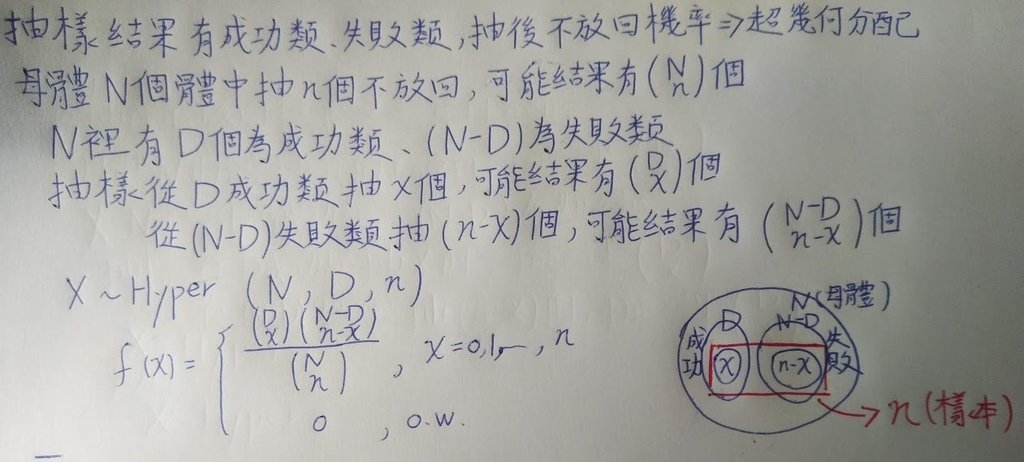 抽樣結果有成功類、失敗類,抽後不放回機率⇒超幾何分配
母體N個體中抽n個不放回,可能結果有(N n)個
N裡有D個為成功類、(N-D)為失敗類
抽樣從D成功類抽x個,可能結果有(D x)個
從(N-D)失敗類抽(n-x)個,可能結果有(N-D n-x)個
X~Hyper (N, D, n)
f(x)= { (D x)(N-D n-x) / (N n) , x=0,1,…, n
0 , o.w.
N(母體)
成功 D N-D 失敗
x n-x
→n(樣本)